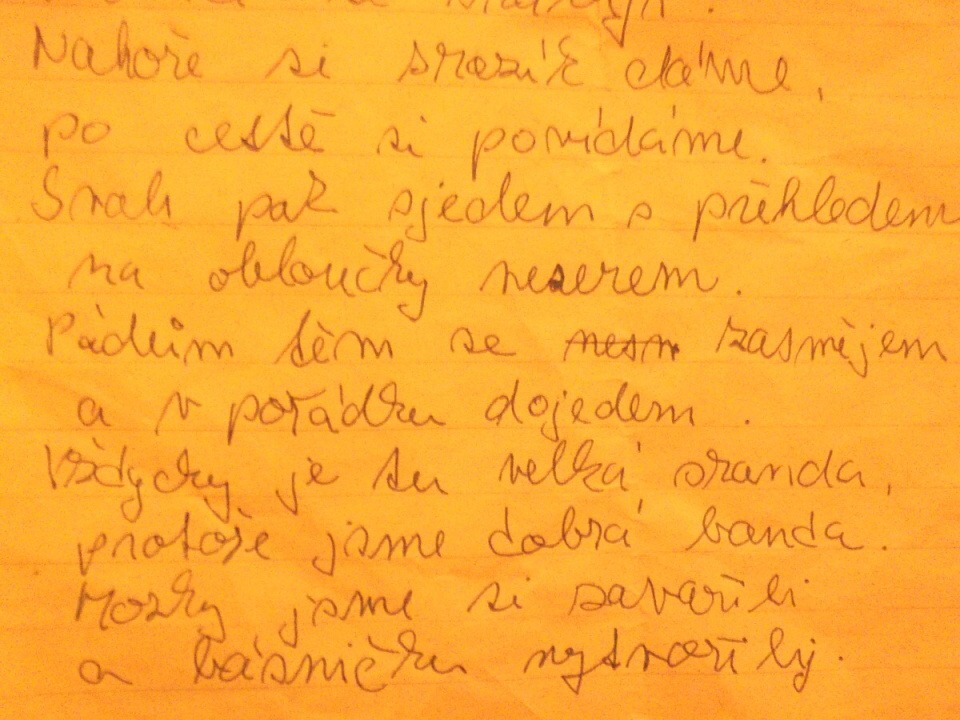 Nahoře si srazík dáme,
po cestě si povídáme.
Svah pak sjedem s přehledem
na obloučky neserem.
Pádům těm se zasmějem
a v pořádku dojedem.
Vždycky je tu velká sranda,
protože jsme dobrá banda.
Mozky jsme si zavařili
a básničku vytvořili.